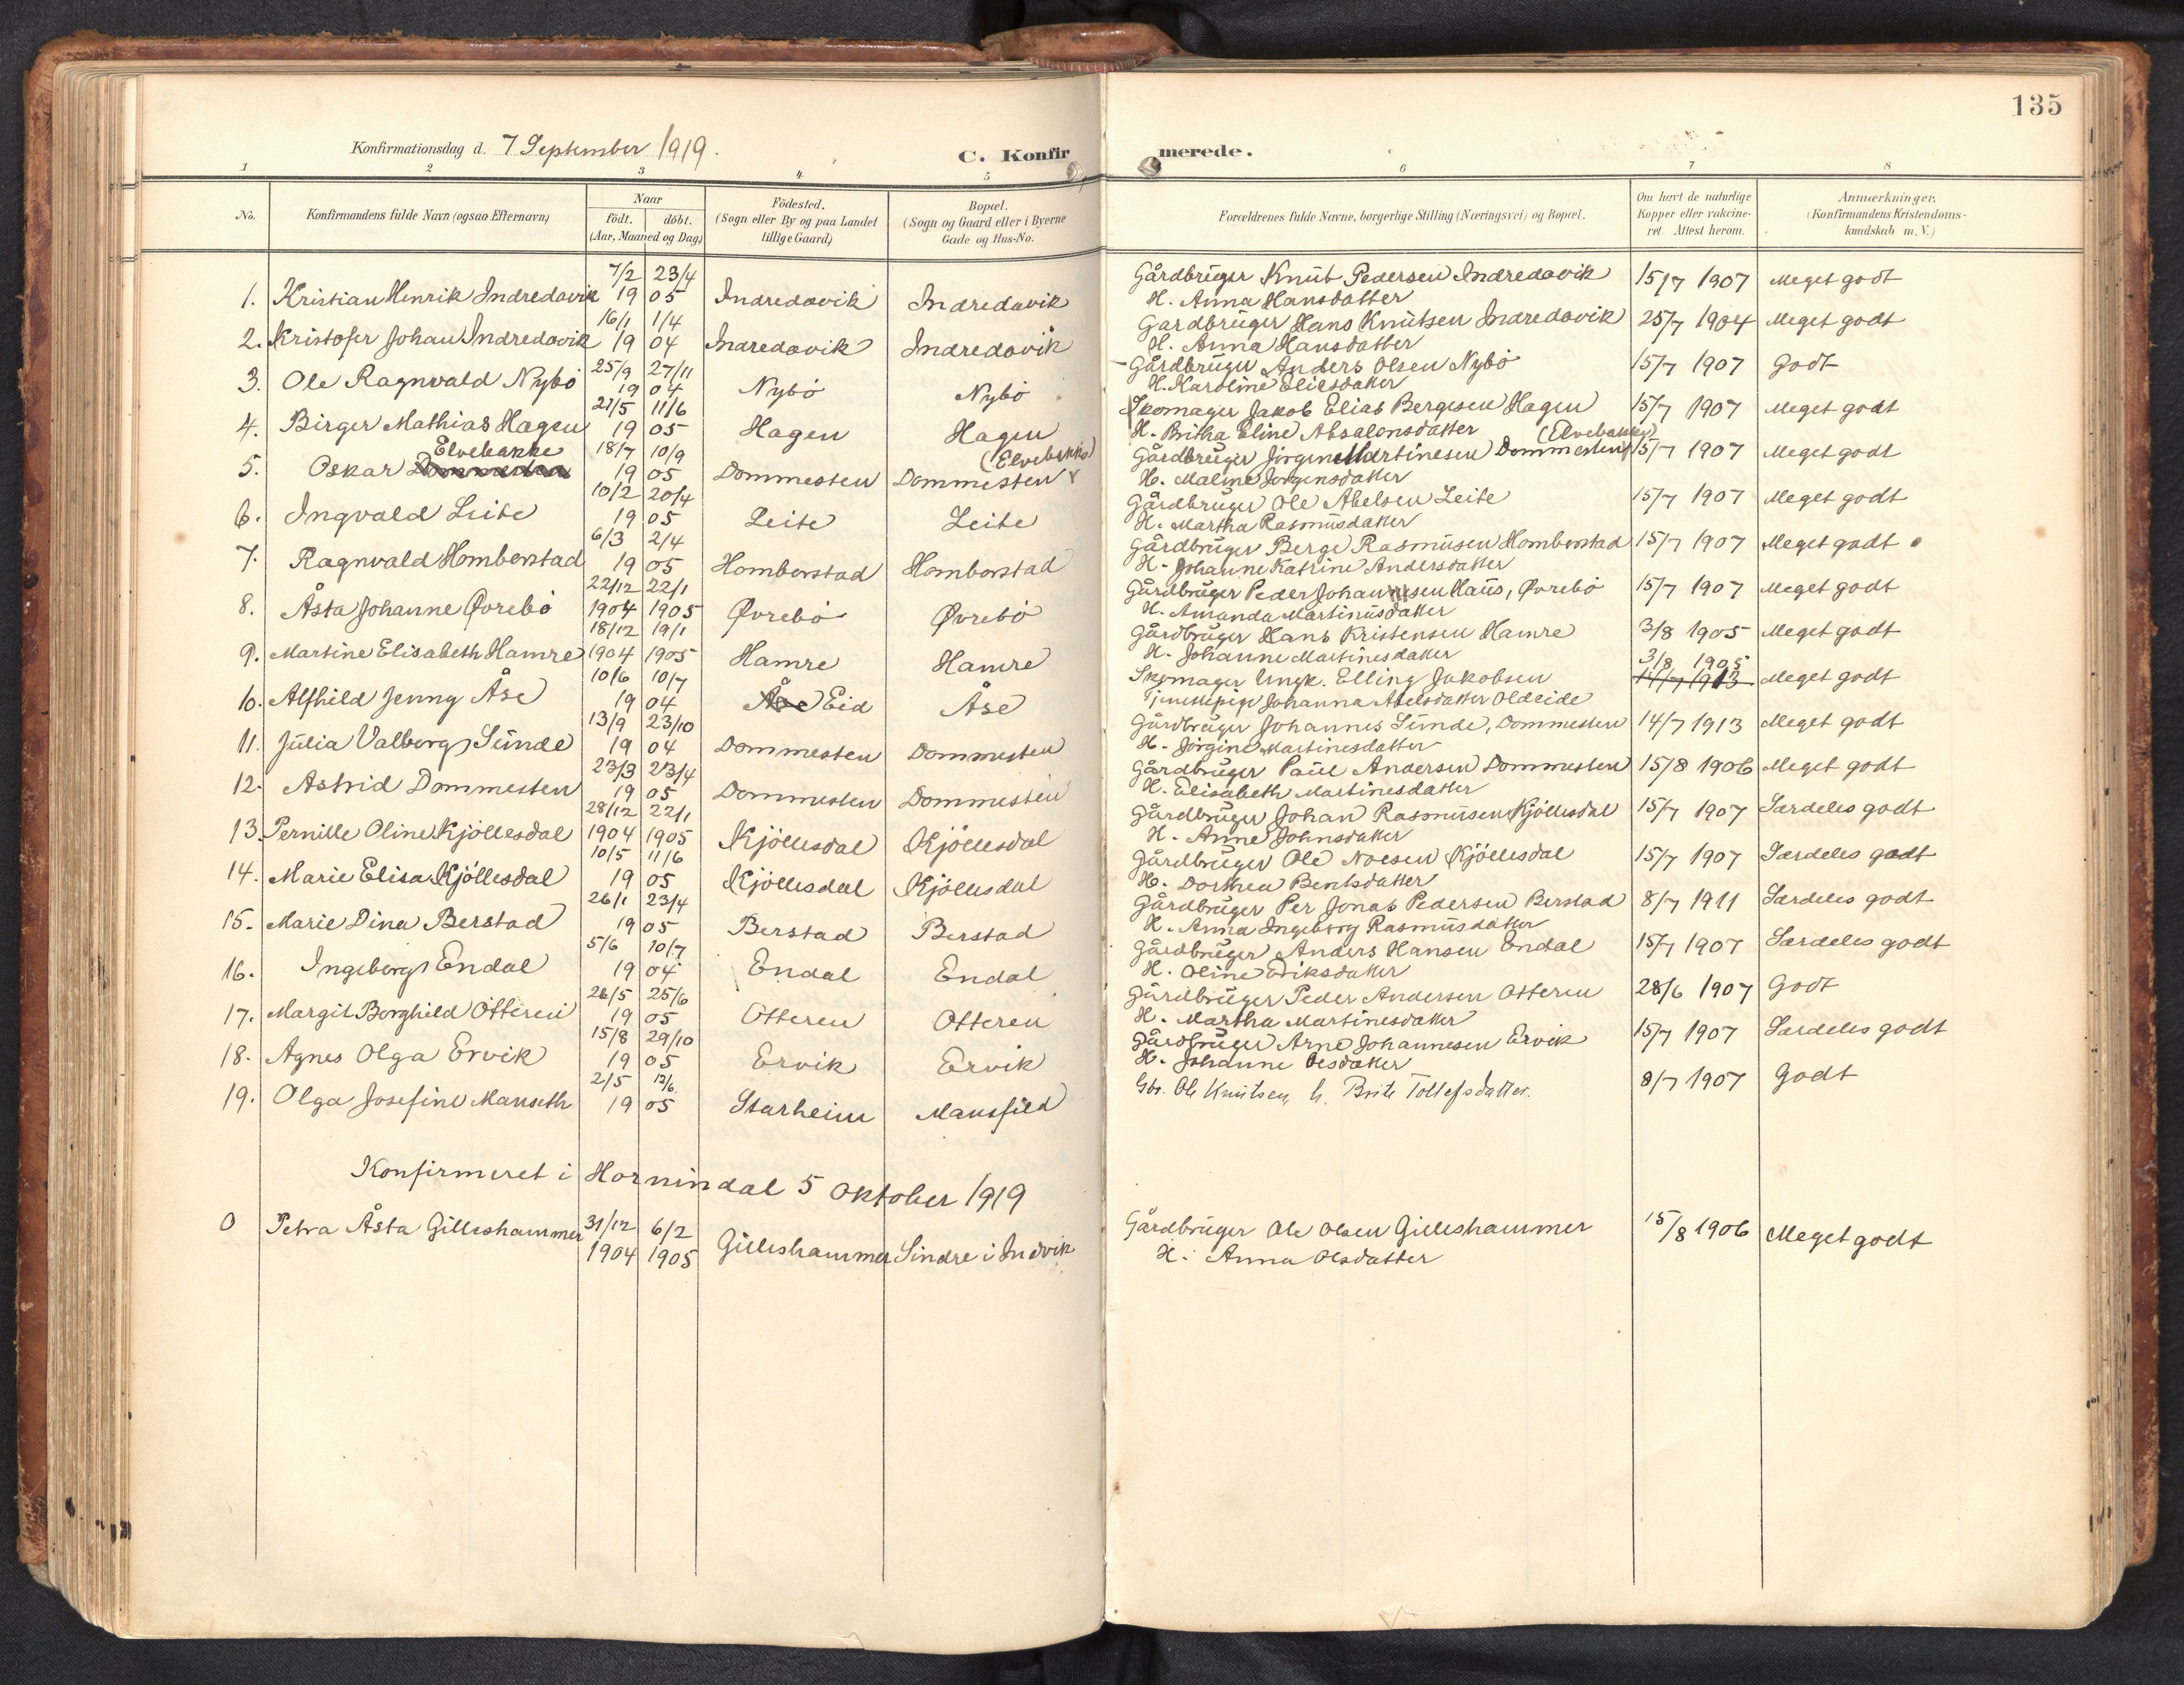 135
Konfirmationsdag d. 7 September 1919.
C. Konfirmerede.
1 2 3 4 5 6 7 8
No. Konfirmandens fulde Navn (ogsaa Efternavn) Naar födt. döbt. (Aar, Maaned og Dag) Födested. (Sogn eller By og paa Landet tillige Gaard) Bopæl. (Sogn og Gaard eller i Byerne Gade og Hus-No. Forældrenes fulde Navne, borgerlige Stilling (Næringsvei) og Bopæl. Om havt de naturlige Kopper eller vakcineret. Attest herom. Anmærkninger. (Konfirmandens Kristendomskundskab m. V.)
7/2 23/4 Gårdbruger Knut Pedersen Indredavik 15/7 1907 Meget godt
1. Kristian Henrik Indredavik 19 05 Indredavik Indredavik H. Anna Hansdatter
16/1 1/4 Gardbruger Hans Knutsen Indredavik 25/7 1904 Meget godt
2. Kristofer Johan Indredavik 19 04 Indredavik Indredavik H. Anna Hansdatter
25/9 27/11 Gårdbruger Anders Olsen Nybö 15/7 1907 Godt
3. Ole Ragnvald Nybö 19 04 Nybö Nybö H. Karoline Eliesdatter
21/5 11/6 Skomager Jakob Elias Bergesen Hagen 15/7 1907 Meget godt
4. Birger Mathias Hagen 19 05 Hagen Hagen H. Britha Eline Absalonsdatter
Elvebakke 18/7 10/9 (Elvebakke) Gårdbruger Jörgen Martinesen Dommesten (Elvebakke) 15/7 1907 Meget godt
5. Oskar 19 05 Dommesten Dommesten H. Maline Jörgensdatter
10/2 20/4 Gårdbruger Ole Abelsen Leite 15/7 1907 Meget godt
6. Ingvald Leite 19 05 Leite Leite H. Martha Rasmusdatter
6/3 2/4 Gårdbruger Berge Rasmusen Homborstad 15/7 1907 Meget godt
7. Ragnvald Homborstad 19 05 Homborstad Homborstad H. Johanne Katrine Andersdatter
22/12 22/1 Gårdbruger Peder Johannesen Haus, Øvrebö 15/7 1907 Meget godt
8. Åsta Johanne Øvrebö 1904 1905 Øvrebö Øvrebö H. Amanda Martinusdatter
18/12 19/1 Gårdbruger Hans Kristensen Hamre 3/8 1905 Meget godt
9. Martine Elisabeth Hamre 1904 1905 Hamre Hamre H. Johanne Martinesdatter
10/6 10/7 Skomager Ungk. Elling Jakobsen 3/8 1905 14/7 1913 Meget godt
10. Alfhild Jenny Åse 19 04 Åse Eid Åse Tjenestepige Johanna Abelsdatter Oldeide
13/9 23/10 Gårdbruger Johannes Sunde, Dommesten 14/7 1913 Meget godt
11. Julia Valborg Sunde 19 04 Dommesten Dommesten H. Jörgine Martinesdatter
23/3 23/4 Gårdbruger Paul Andersen Dommesten 15/8 1906 Meget godt
12. Astrid Dommesten 19 05 Dommesten Dommesten H. Elisabeth Martinesdatter
28/12 22/1 Gårdbruger Johan Rasmusen Kjöllesdal 15/7 1907 Særdeles godt
13. Pernille Oline Kjöllesdal 1904 1905 Kjöllesdal Kjöllesdal H. Anne Johnsdatter
10/5 11/6 Gårdbruger Ole Noesen Kjöllesdal 15/7 1907 Særdeles godt
14. Marie Elisa Kjöllesdal 19 05 Kjöllesdal Kjöllesdal H. Dorthea Bentsdatter
26/1 23/4 Gårdbruger Per Jonas Pedersen Berstad 8/7 1911 Særdeles godt
15. Marie Dina Berstad 19 05 Berstad Berstad H. Anna Ingeborg Rasmusdatter
5/6 10/7 Gårdbruger Anders Hansen Endal 15/7 1907 Særdeles godt
16. Ingeborg Endal 19 04 Endal Endal H. Oline Eriksdatter
26/5 25/6 Gårdbruger Peder Andersen Otteren 28/6 1907 Godt
17. Margit Borghild Otteren 19 05 Otteren Otteren H. Martha Martinesdatter
15/8 29/10 Gårdbruger Arne Johannesen Ervik 15/7 1907 Særdeles godt
18. Agnes Olga Ervik 19 05 Ervik Ervik H. Johanne Olesdatter
2/5 12/6 Gbr. Ole Knutsen, h. Brite Tollefsdatter. 8/7 1907 Godt
19. Olga Josefine Manseth 19 05 Starheim Mansfield
Konfirmeret i Hornindal 5 Oktober 1919
0 Petra Åsta Gilleshammer 31/12 6/2 Gårdbruger Ole Olsen Gilleshammer 15/8 1906 Meget godt
1904 1905 Gilleshammer Sindre i Indvik H. Anna Olsdatter